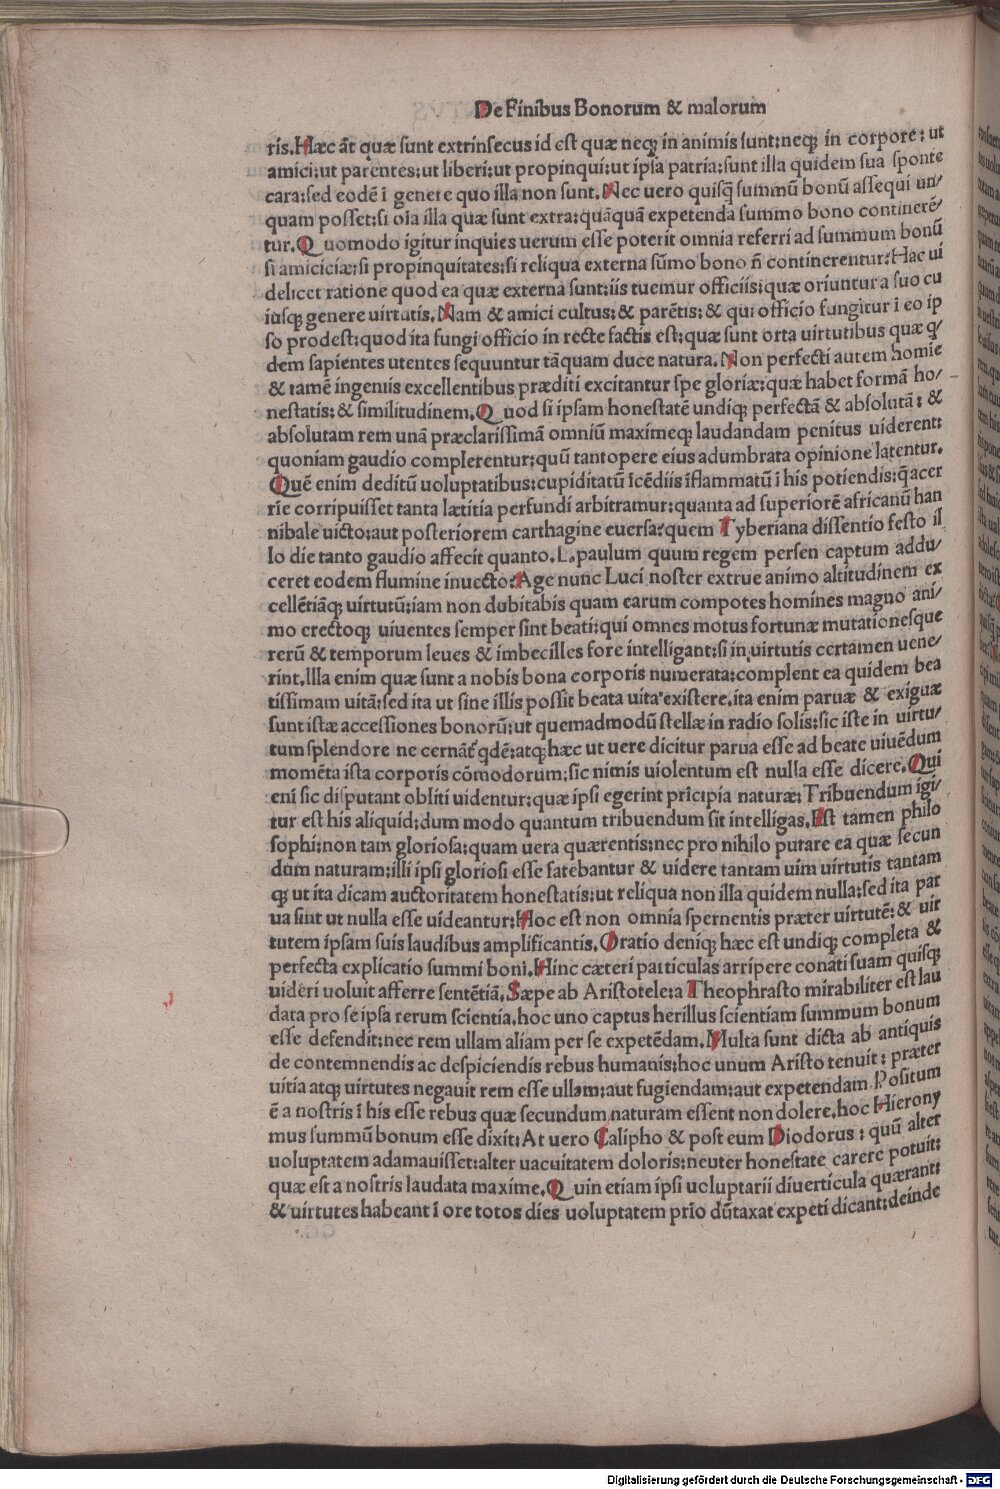 De Finibus Bonorum & malorum
ris.Hæc āt quæ sunt extrinsecus id est quæ neqꝫ in animis sunt:neqꝫ in corpore: ut
amici:ut parentes:ut liberi:ut propinqui:ut ipsa patria:sunt illa quidem sua sponte
cara:sed eodē ī genere quo illa non sunt.Nec uero quisq̄ summū bonū assequi un/
quam posset:si oīa illa quæ sunt extra:quāquā expetenda summo bono continerē/
tur.Quomodo igitur inquies uerum esse poterit omnia referri ad summum bonū
si amiciciæ:si propinquitates:si reliqua externa sūmo bono n̄ continerentur:Hac ui
delicet ratione quod ea quæ externa sunt:iis tuemur officiis:quæ oriuntur a suo cu
iusqꝫ genere uirtutis.Nam & amici cultus:& parētis:& qui officio fungitur ī eo ip
so prodest:quod ita fungi officio in recte factis est:quæ sunt orta uirtutibus quæ q'
dem sapientes utentes sequuntur tāquam duce natura.Non perfecti autem homīe
& tamē ingeniis excellentibus præditi excitantur spe gloriæ:quæ habet formā ho/
nestatis:& similitudinem.Quod si ipsam honestatē undiqꝫ perfectā & absolutā: &
absolutam rem unā præclarissimā omniū maximeqꝫ laudandam penitus uiderent:
quoniam gaudio complerentur:quū tantopere eius adumbrata opinione latentur.
Quē enim deditū uoluptatibus:cupiditatū īcēdiis īflammatū ī his potiendis:q̄ acer
rīe corripuisset tanta lætitia perfundi arbitramur:quanta ad superiorē africanū han
nibale uicto:aut posteriorem carthagine euersa:quem Tyberiana dissentio festo il
lo die tanto gaudio affecit quanto.L.paulum quum regem persen captum addu/
ceret eodem flumine inuecto:Age nunc Luci noster extrue animo altitudinem ex
cellētiāqꝫ uirtutū:iam non dubitabis quam earum compotes homines magno ani/
mo erectoqꝫ uiuentes semper sint beati:qui omnes motus fortunæ mutationesque
rerū & temporum leues & imbecilles fore intelligant:si in uirtutis certamen uene/
rint.Illa enim quæ sunt a nobis bona corporis numerata:complent ea quidem bea
tissimam uitā:sed ita ut sine illis possit beata uita existere.ita enim paruæ & exiguæ
sunt istæ accessiones bonorū:ut quemadmodū stellæ in radio solis:sic iste in uirtu/
tum splendore ne cernāt̄ qdē:atqꝫ hæc ut uere dicitur parua esse ad beate uiuēdum
momēta ista corporis cōmodorum:sic nimis uiolentum est nulla esse dicere.Qui
enī sic disputant obliti uidentur:quæ ipsi egerint prīcipia naturæ:Tribuendum igi/
tur est his aliquid:dum modo quantum tribuendum sit intelligas.Est tamen philo
sophi:non tam gloriosa:quam uera quærentis:nec pro nihilo putare ea quæ secun
dum naturam:illi ipsi gloriosi esse fatebantur & uidere tantam uim uirtutis tantam
qꝫ ut ita dicam auctoritatem honestatis:ut reliqua non illa quidem nulla:sed ita par
ua sint ut nulla esse uideantur:Hoc est non omnia spernentis præter uirtutē:& uir
tutem ipsam suis laudibus amplificantis.Oratio deniqꝫ hæc est undiqꝫ completa &
perfecta explicatio summi boni.Hinc cæteri particulas arripere conati suam quisqꝫ
uideri uoluit afferre sentētiā.Sæpe ab Aristotele:a Theophrasto mirabiliter est lau
data pro se ipsa rerum scientia.hoc uno captus herillus scientiam summum bonum
esse defendit:nec rem ullam aliam per se expetēdam.Multa sunt dicta ab antiquis
de contemnendis ac despiciendis rebus humanis:hoc unum Aristo tenuit: præter
uitia atqꝫ uirtutes negauit rem esse ullam:aut fugiendam:aut expetendam.Positum
ē a nostris ī his esse rebus quæ secundum naturam essent non dolere.hoc Hierony
mus summū bonum esse dixit:At uero Calipho & post eum Diodorus: quū alter
uoluptatem adamauisset:alter uacuitatem doloris:neuter honestate carere potuit:
quæ est a nostris laudata maxime.Quin etiam ipsi uoluptarii diuerticula quærant:
& uirtutes habeant ī ore totos dies uoluptatem prīo dūtaxat expeti dicant:deinde
Digitalisierung gefördert durch die Deutsche Forschungsgemeinschaft - DFG